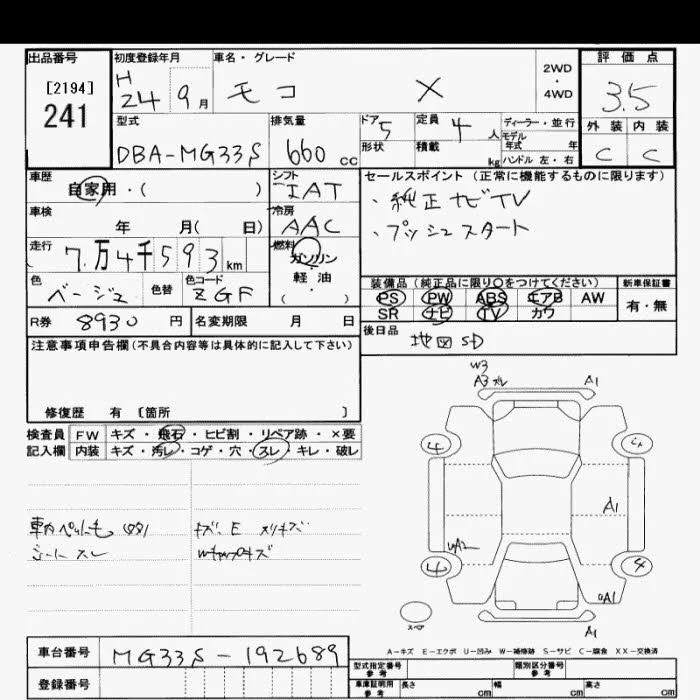 出品番号
[2194]
241
初度登録年月
H
24 9月
車名・グレード
モコ X
2WD
・
4WD
評価点
3.5
外装 内装
C C
型式
DBA-MG33S
排気量
660 cc
ドア 5
形状
定員 4 人
積載 kg
ディーラー・並行
モデル
年式 年
ハンドル 左・右
車歴
自家用・( )
シフト
IAT
車検
年 月( 日)
冷房
AAC
走行
7万4千593 km
燃料
ガソリン
軽・油
( )
色
ベージュ
色替
色コード
ZGF
R券 8930 円
名変期限 月 日
セールスポイント(正常に機能するものに限ります)
・純正ナビTV
・プッシュスタート
装備品(純正品に限り○をつけてください)
新車保証書
PS PW ABS エアB AW
SR ナビ TV カワ
有・無
後日品
地図SD
注意事項申告欄(不具合内容等は具体的に記入して下さい)
修復歴 有 [箇所 ]
検査員
記入欄
FW キズ・飛石・ヒビ割・リペア跡・×要
内装 キズ・汚レ・コゲ・穴・スレ・キレ・破レ
シート スレ
キズ、E
W3
A3 スレ
A1
4
4
A1
UA2
4
4
UA1
A1
スペア
A-キズ E-エクボ U-凹み W-補修跡 S-サビ C-腐食 XX-交換済
車台番号
MG33S-192689
登録番号
型式指定番号
参考
類別区分番号
参考
車庫証明用
参考
長さ cm
幅 cm
高さ cm